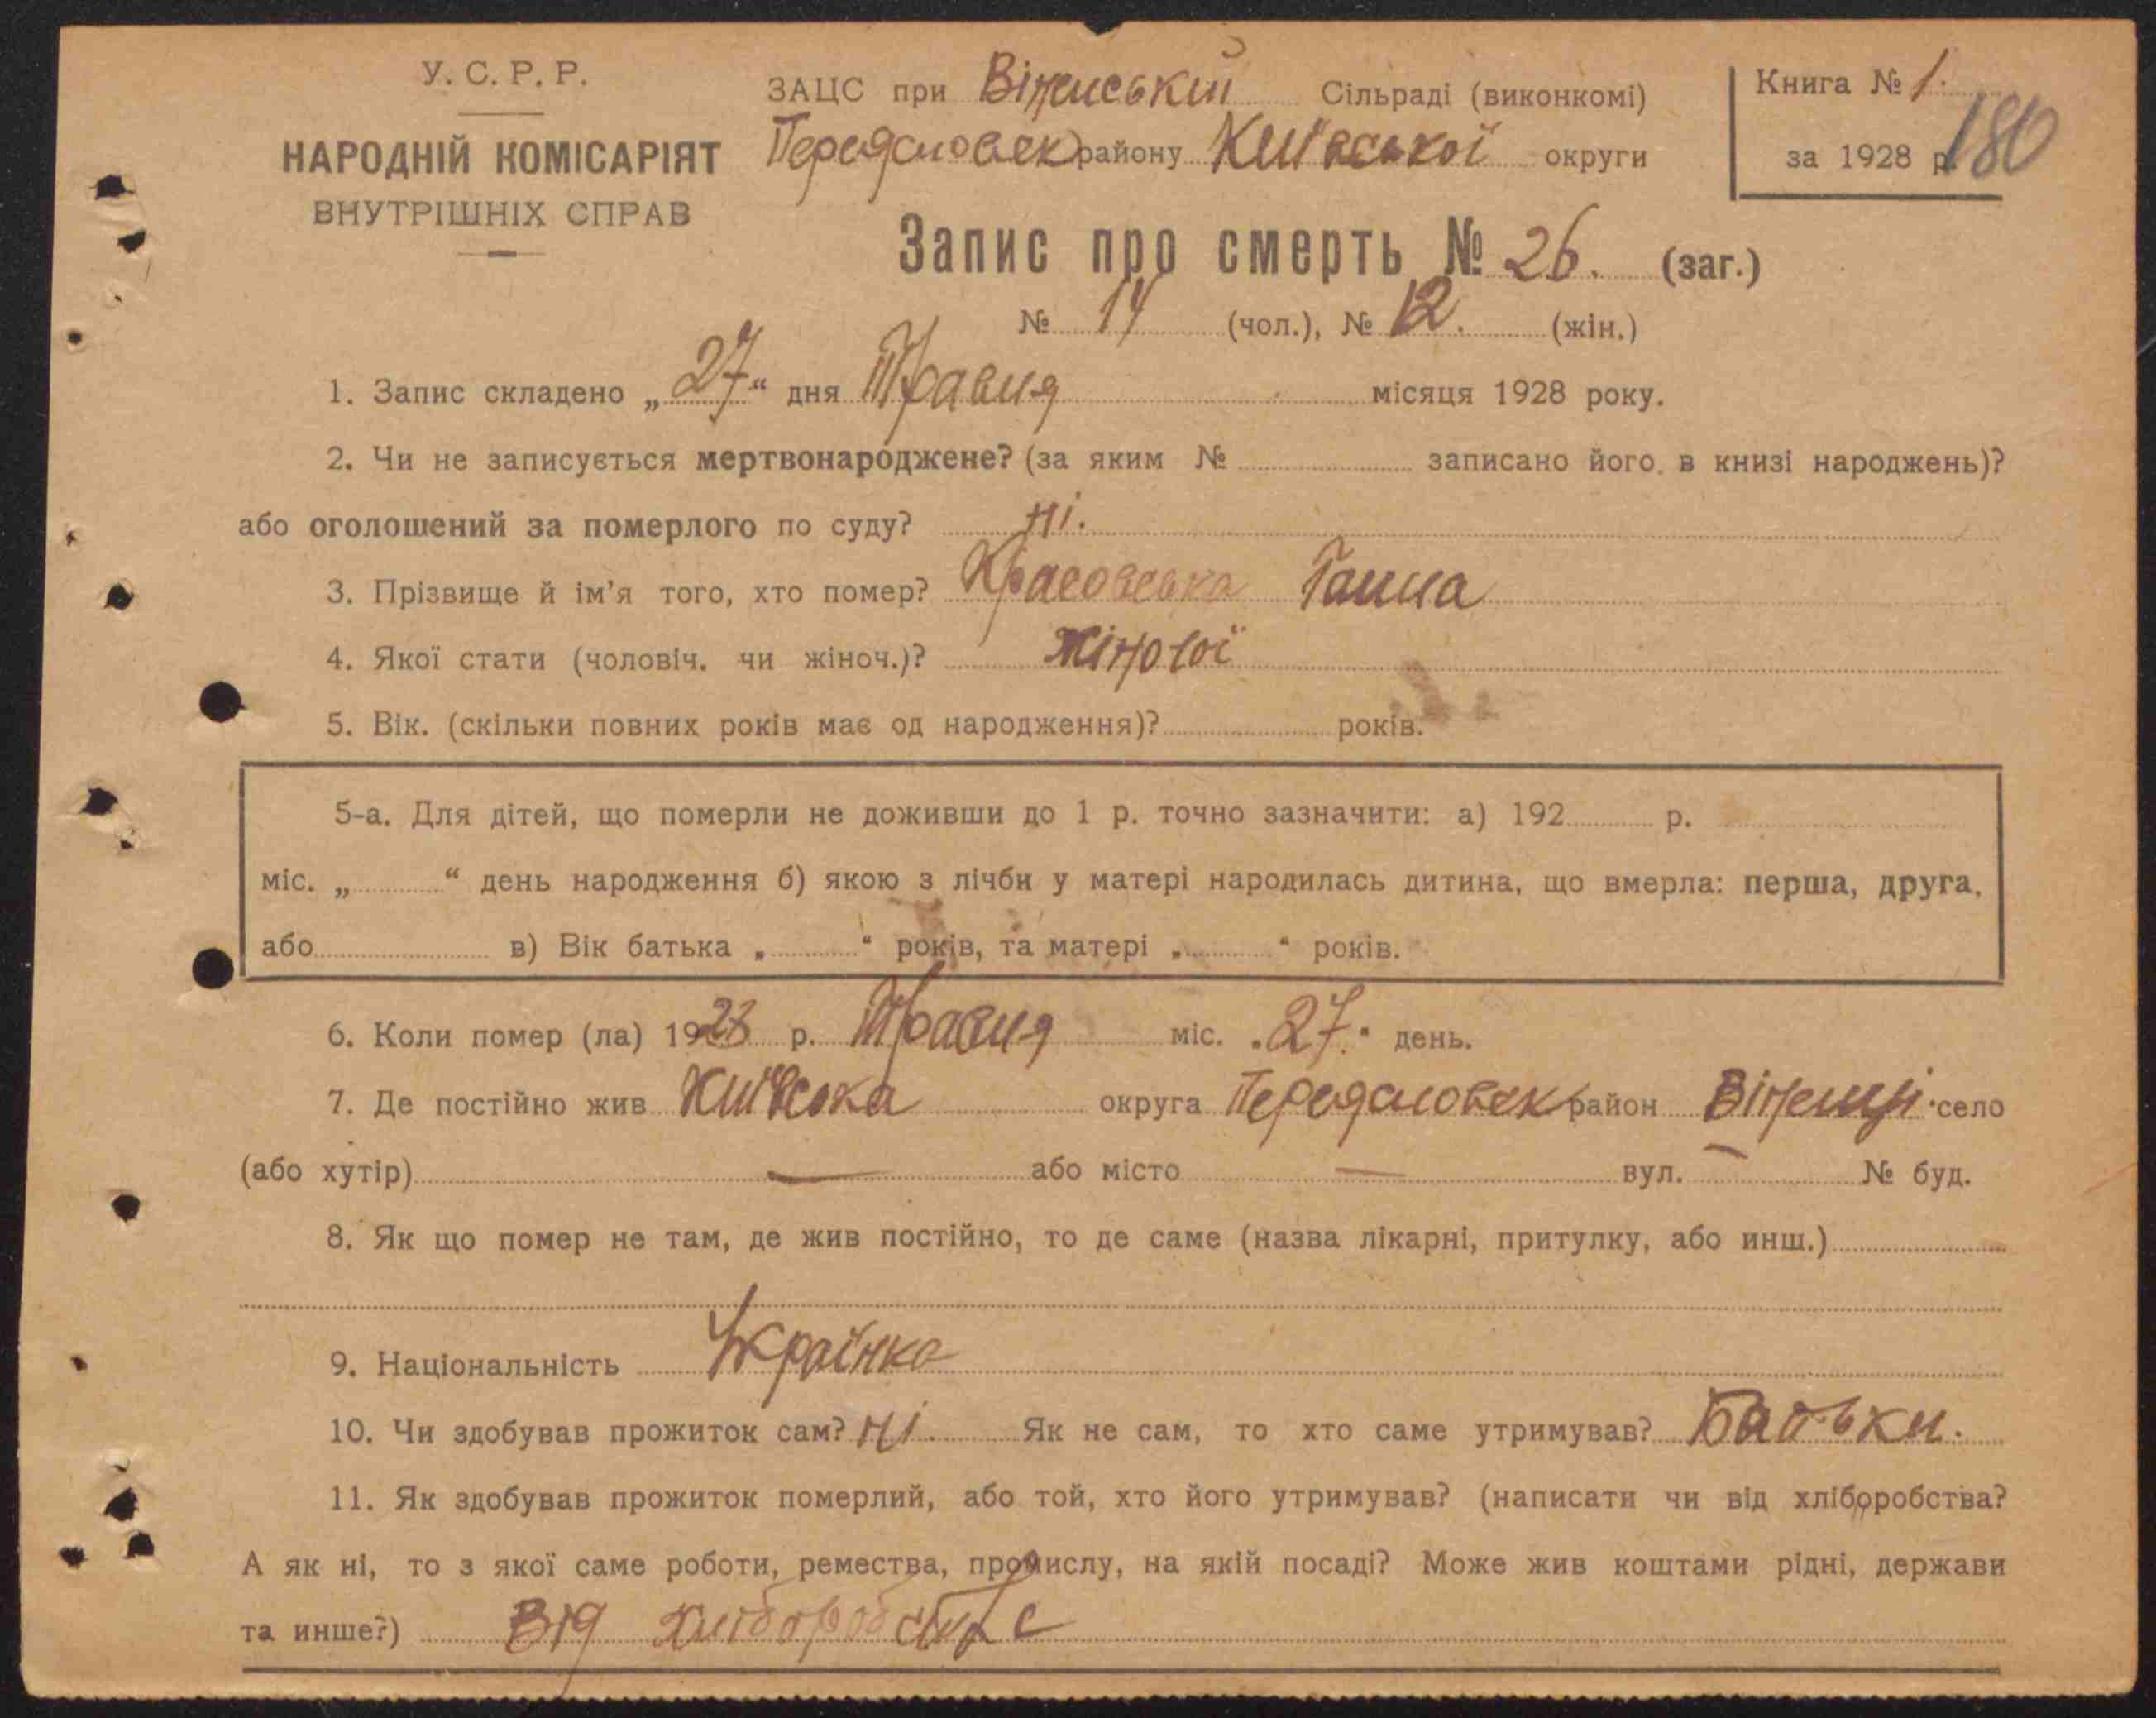 У. С. Р. Р.
НАРОДНІЙ КОМІСАРІЯТ
ВНУТРІШНІХ СПРАВ
ЗАЦС при Віненській Сільраді (виконкомі)
району Київської округи
Книга № 1.
за 1928 р. 180
Запис про смерть № 26. (заг.)
№ 14 (чол.), № 12. (жін.)
1. Запис складено „27“ дня Травня місяця 1928 року.
2. Чи не записується мертвонароджене? (за яким № записано його в книзі народжень)?
або оголошений за померлого по суду? ні.
3. Прізвище й ім’я того, хто помер? Красовська Ганна
4. Якої стати (чоловіч. чи жіноч.)? жіночої
5. Вік. (скільки повних років має од народження)? років.
5-а. Для дітей, що померли не доживши до 1 р. точно зазначити: а) 192 р.
міс. „ “ день народження б) якою з лічби у матері народилась дитина, що вмерла: перша, друга,
або в) Вік батька „ “ років, та матері „ “ років.
6. Коли помер (ла) 1928 р. Травня міс. „27.“ день.
7. Де постійно жив Київська округа район село
(або хутір) — або місто — вул. — № буд.
8. Як що помер не там, де жив постійно, то де саме (назва лікарні, притулку, або инш.)
9. Національність Українка
10. Чи здобував прожиток сам? Ні. Як не сам, то хто саме утримував? Батьки.
11. Як здобував прожиток померлий, або той, хто його утримував? (написати чи від хліборобства?
А як ні, то з якої саме роботи, ремества, промислу, на якій посаді? Може жив коштами рідні, держави
та инше?) Від хліборобства